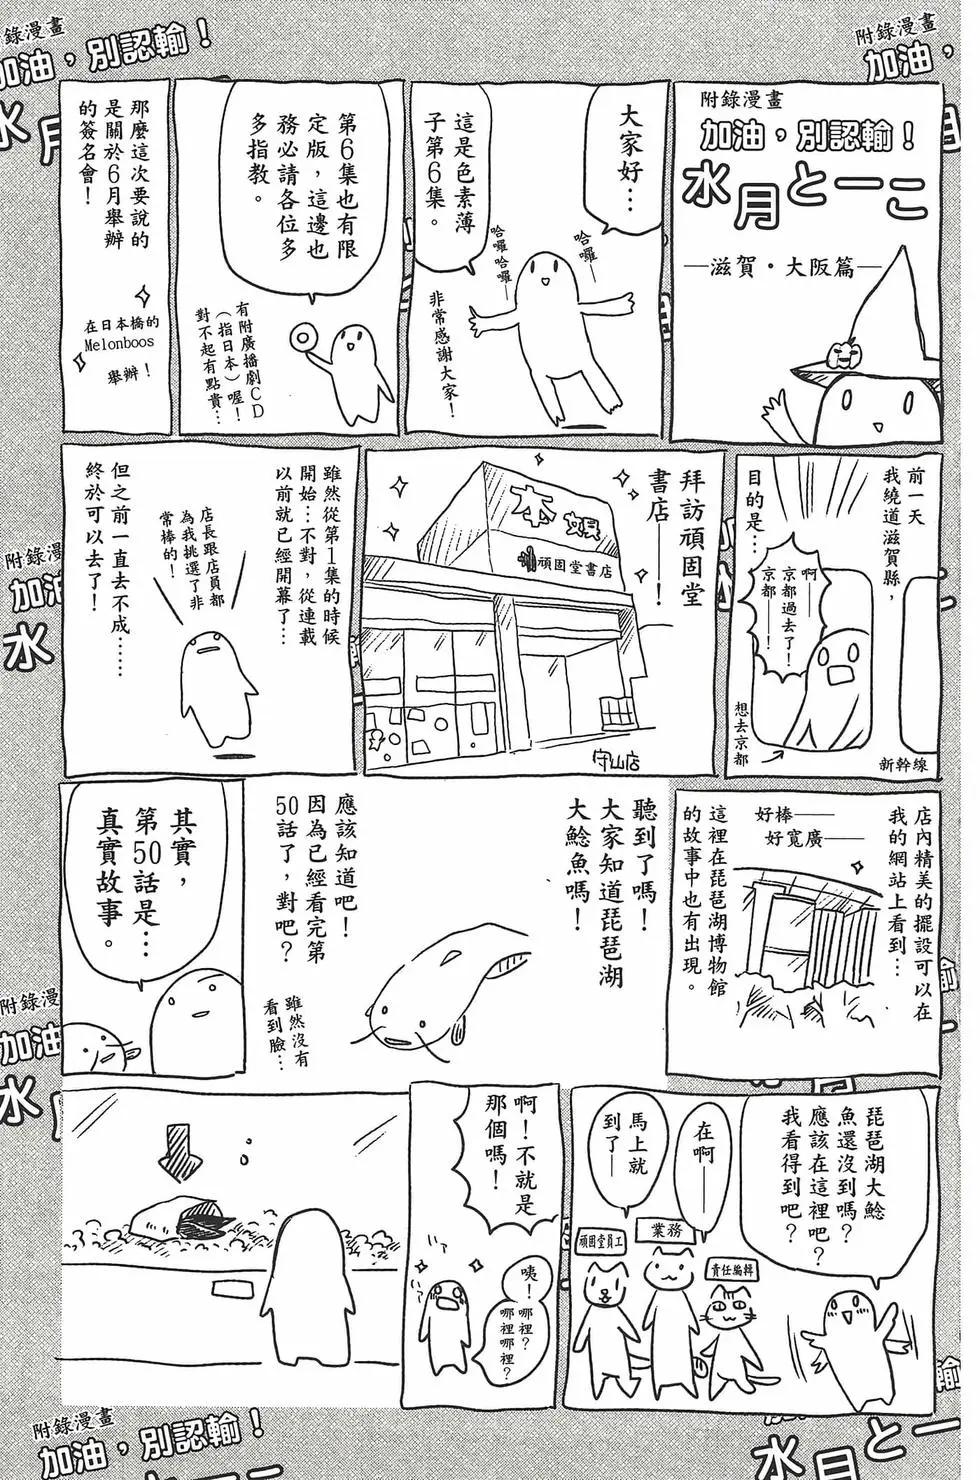 附錄漫畫
加油，別認輸！
水月とーこ
—滋賀・大阪篇—
大家好…
這是色素薄
子第6集。
哈囉——
哈囉哈囉——
非常感謝大家！
第6集也有限
定版，這邊也
務必請各位多
多指教。
有附廣播劇CD
（指日本）喔！
對不起有點貴…
那麼這次要說的
是關於6月舉辦
的簽名會！
在日本橋的
Melonboos
舉辦！
前一天
我繞道滋賀縣，
目的是…
啊——
京都過去了！
京都——！
想去京都
新幹線
拜訪頑固堂
書店——！
本
頑固堂書店
守山店
雖然從第1集的時候
開始…不對，從連載
以前就已經開幕了…
店長跟店員都
為我挑選了非
常棒的！
但之前一直去不成……
終於可以去了！
店內精美的擺設可以在
我的網站上看到…
好棒——
好寬廣——
這裡在琵琶湖博物館
的故事中也有出現。
聽到了嗎！
大家知道琵琶湖
大鯰魚嗎！
應該知道吧！
因為已經看完第
50話了，對吧？
雖然沒有
看到臉…
其實，
第50話是…
真實故事。
琵琶湖大鯰
魚還沒到嗎？
應該在這裡吧？
我看得到吧？
在啊——
馬上就
到了—
頑固堂員工
業務
責任編輯
啊！不就是
那個嗎！
咦！哪裡？
哪裡哪裡？
附錄漫畫
加油，別認輸！
水月
附錄漫畫
加油，
附錄漫畫
加油
水
附錄漫畫
加油
水
附錄漫畫
加油，別認輸！
水月とーこ